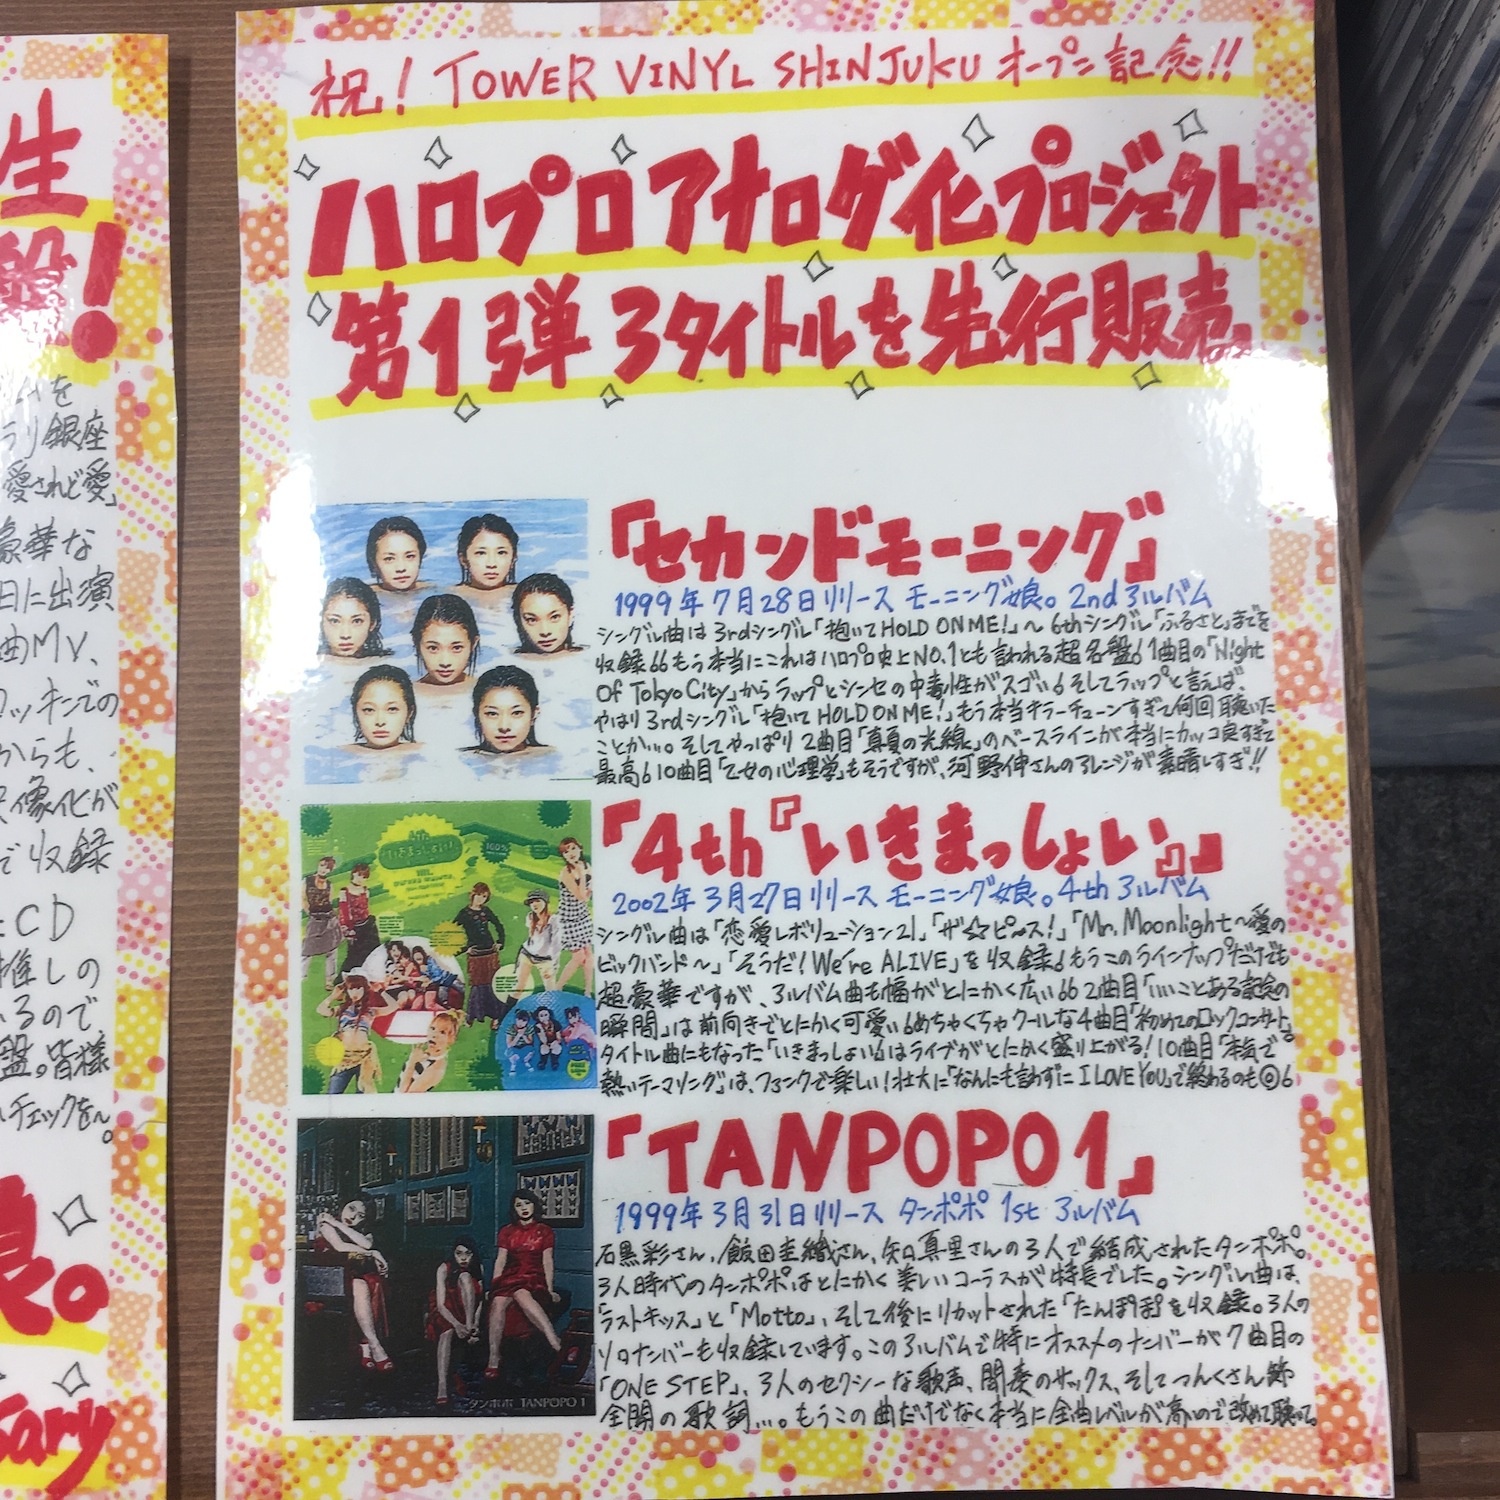 祝！TOWER VINYL SHINJUKU オープン記念!!
ハロプロアナログ化プロジェクト
第1弾 3タイトルを先行販売
「セカンドモーニング」
1999年7月28日リリース モーニング娘。2ndアルバム
シングル曲は3rdシングル「抱いてHOLD ON ME!」～6thシングル「ふるさと」までを
収録!!もう本当にこれはハロプロ史上NO.1とも言われる超名盤!1曲目の「Night
Of Tokyo City」からラップとシンセの中毒性がスゴい!そしてラップと言えば、
やはり3rdシングル「抱いてHOLD ON ME!」もう本当キラーチューンすぎて何回聴いた
ことか…。そしてやっぱり2曲目「真夏の光線」のベースラインが本当にカッコ良すぎて
最高!10曲目「乙女の心理学」もそうですが、河野伸さんのアレンジが素晴しすぎ!!
「4th『いきまっしょい!』」
2002年3月27日リリース モーニング娘。4thアルバム
シングル曲は「恋愛レボリューション21」「ザ☆ピ～ス!」「Mr.Moonlight～愛の
ビックバンド～」「そうだ!We're ALIVE」を収録!もうこのラインナップだけでも
超豪華ですが、アルバム曲も幅がとにかく広い!!2曲目「いいことある記念の
瞬間」は前向きでとにかく可愛い!めちゃくちゃクールな4曲目「初めてのロックコンサート」。
タイトル曲にもなった「いきまっしょい!」はライブがとにかく盛り上がる!10曲目「本気で
熱いテーマソング」は、ファンクで楽しい!壮大に「なんにも言わずに I LOVE YOU」で終わるのも◎!
タンポポ TANPOPO 1
「TANPOPO 1」
1999年3月31日リリース タンポポ 1stアルバム
石黒彩さん、飯田圭織さん、矢口真里さんの3人で結成されたタンポポ。
3人時代のタンポポはとにかく美しいコーラスが特長でした。シングル曲は、
「ラストキッス」と「Motto」、そして後にリカットされた「たんぽぽ」を収録。3人の
ソロナンバーも収録しています。このアルバムで特にオススメのナンバーが7曲目の
「ONE STEP」、3人のセクシーな歌声、間奏のサックス、そしてつんくさん節
全開の歌詞…。もうこの曲だけでなく本当に全曲レベルが高いので改めて聴いて。
生
殿!
を
ラリ銀座
愛されど愛」
豪華な
日に出演
曲MV、
ロッキンでの
からも、
像化が
で収録
CD
推しの
るので、
盤。皆様
チェックを。
良。
sary